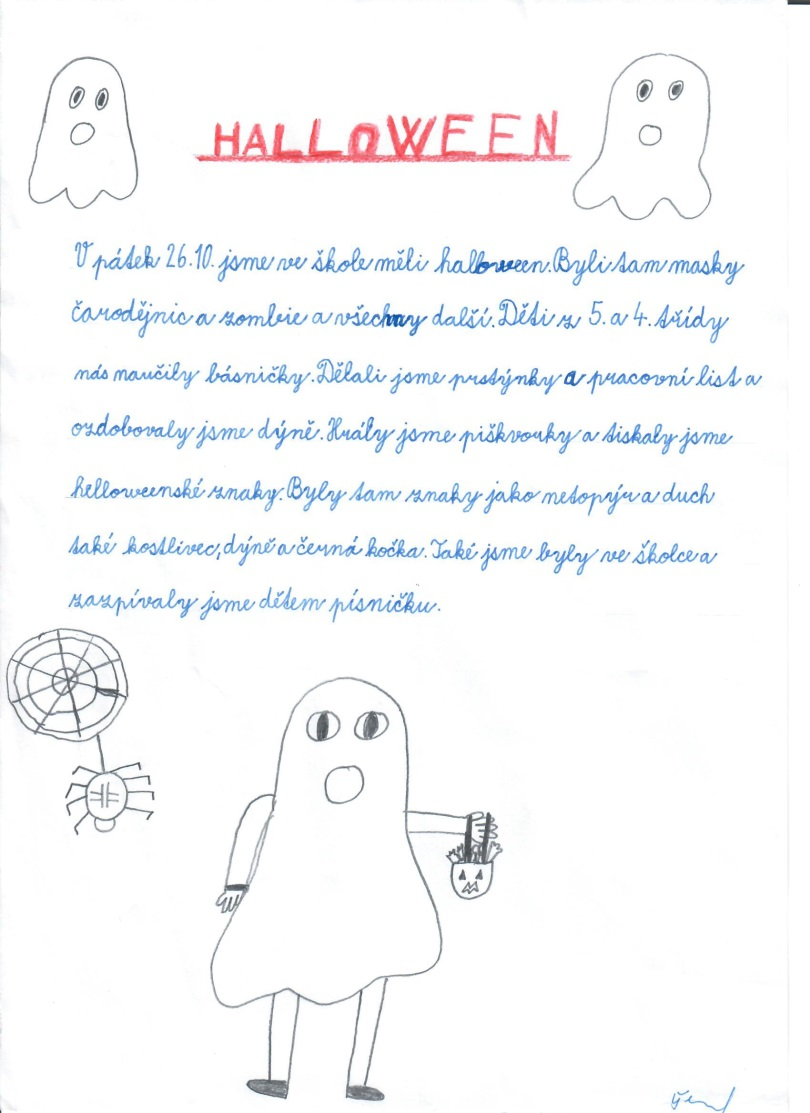 HALLOWEEN
V pátek 26.10. jsme ve škole měli halloween. Byli tam masky
čarodějnic a zombie a všechny další. Děti z 5. a 4. třídy
nás naučily básničky. Dělali jsme prstýnky a pracovní list a
ozdobovaly jsme dýně. Hrály jsme piškvorky a tiskaly jsme
helloweenské znaky. Byly tam znaky jako netopýr a duch
také kostlivec, dýně a černá kočka. Také jsme byly ve školce a
zazpívaly jsme dětem písničku.